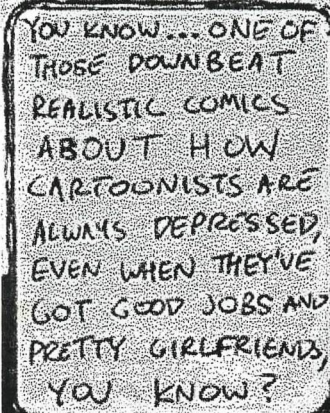 YOU KNOW... ONE OF
THOSE DOWNBEAT
REALISTIC COMICS
ABOUT HOW
CARTOONISTS ARE
ALWAYS DEPRESSED,
EVEN WHEN THEY'VE
GOT GOOD JOBS AND
PRETTY GIRLFRIENDS,
YOU KNOW?